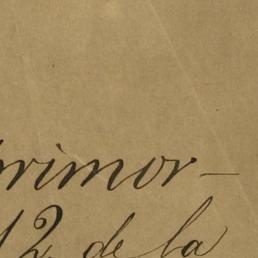 primor-
12 de la